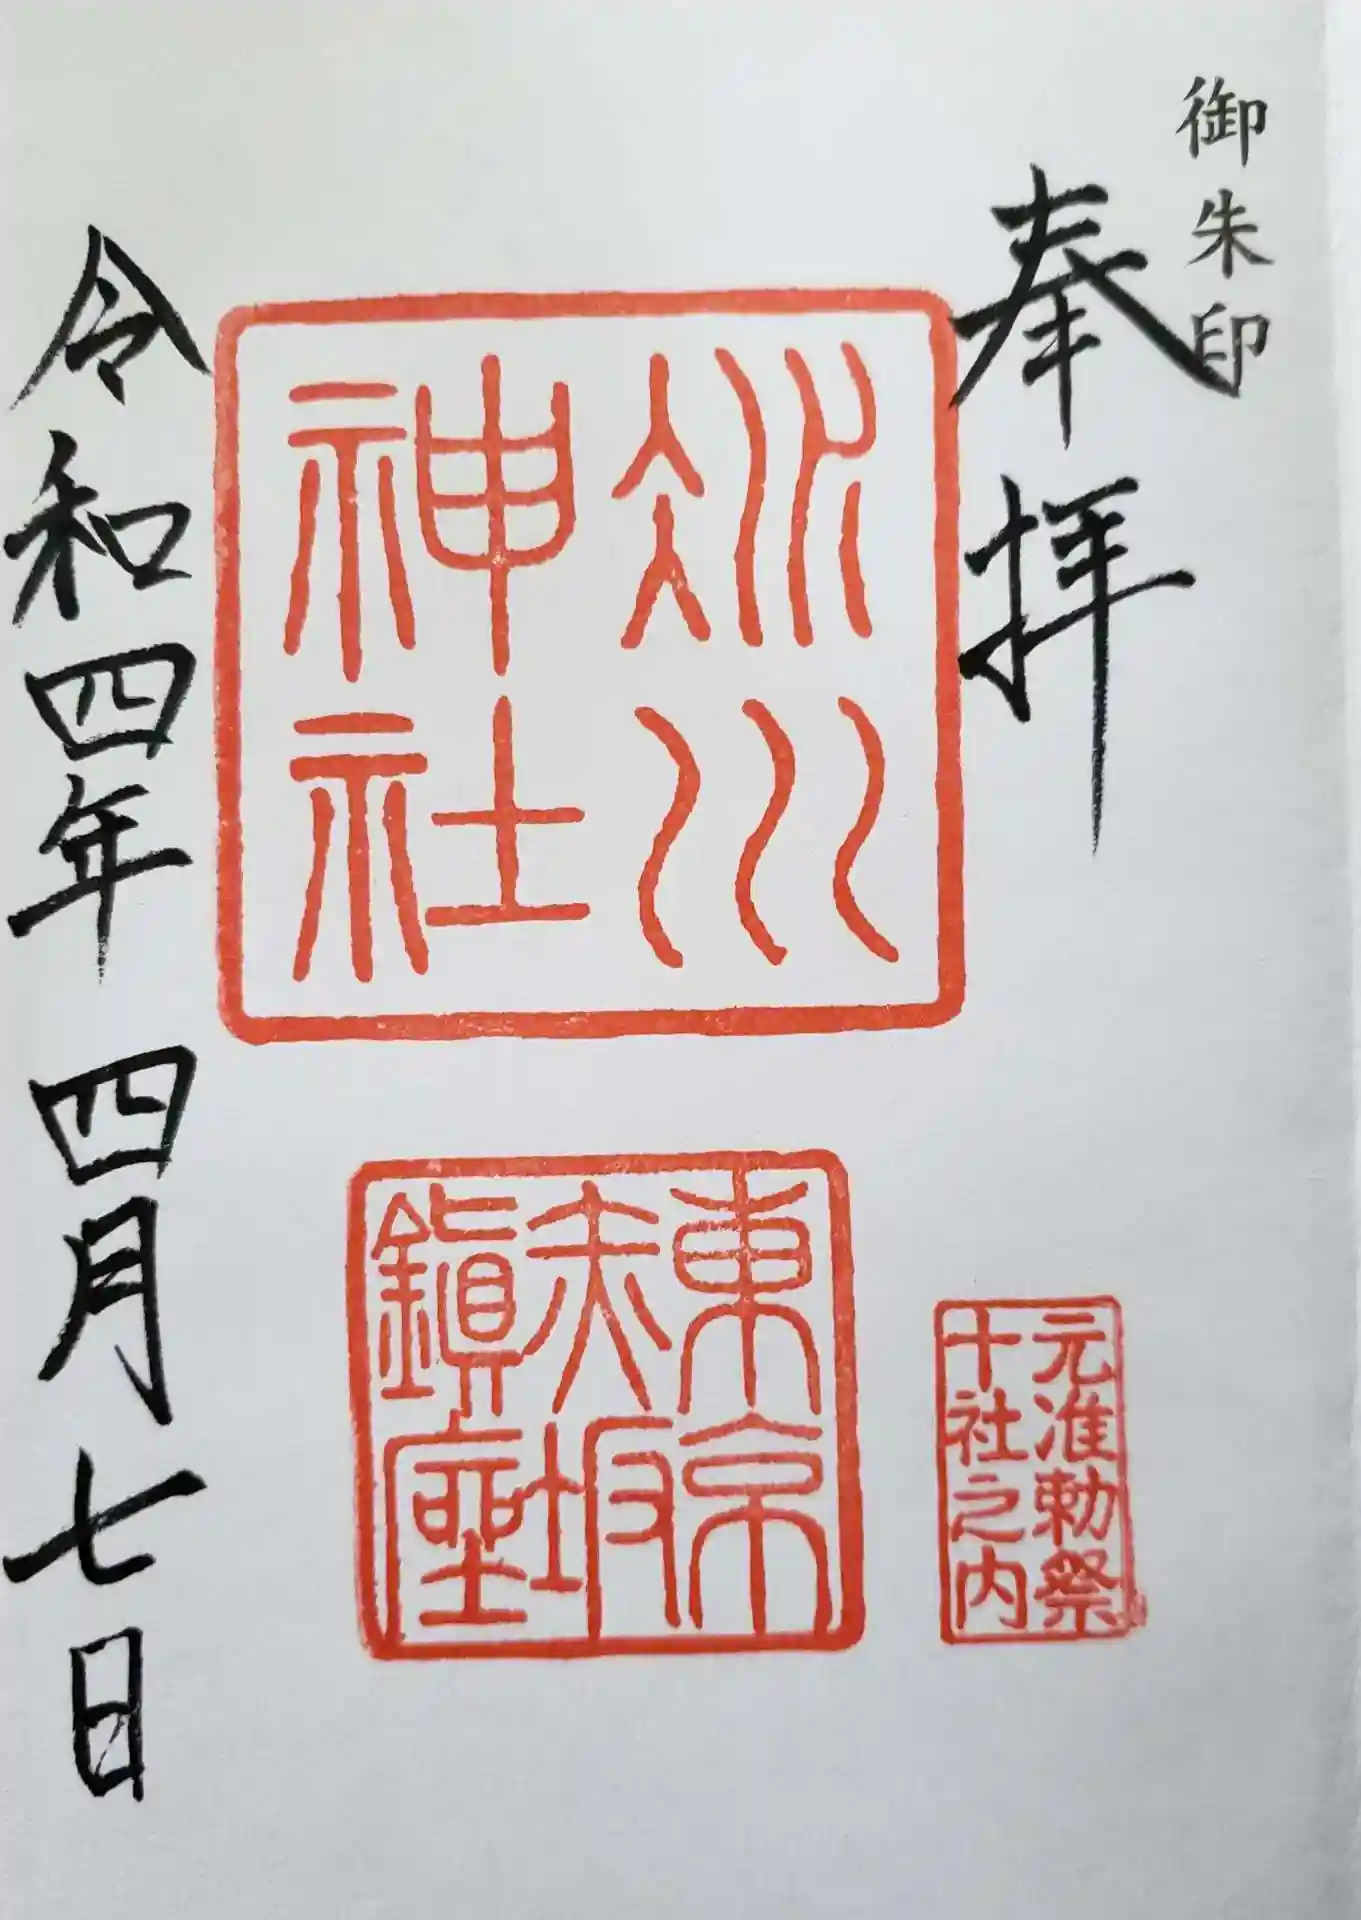 御朱印
奉拝
冰川
神社
元准勅祭
十社之内
東京
赤坂
鎭座
令和四年四月七日